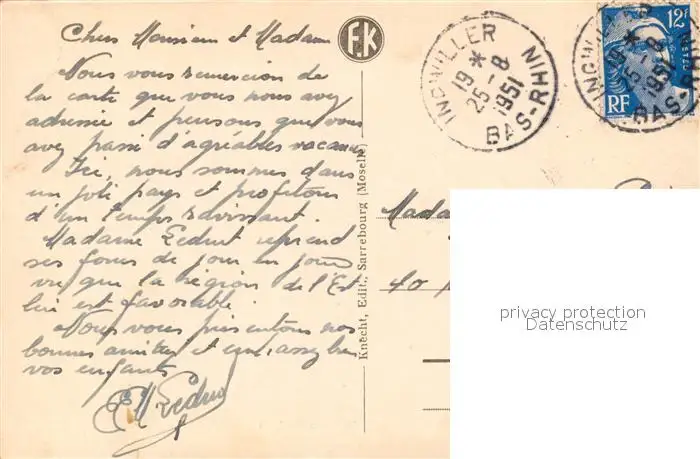 Chers Monsieur et Madame
Nous vous remercions de
la carte que vous nous avez
adressée et pensons que vous
avez passé d'agréables vacances
Ici, nous sommes dans
un joli pays et profitons
d'un temps ravissant.
Madame Leduc reprend
ses forces de jour en jour
vu que la région de l'Est
lui est favorable.
Nous vous présentons nos
bonnes amitiés et embrassez bien
vos enfants
Leduc
F.K
Knecht, Edit., Sarrebourg (Moselle)
INGWILLER
19 *
25-8
1951
BAS-RHIN
12F
RF
INGWILLER
19 *
25-8
1951
BAS-RHIN
Madame
40
privacy protection
Datenschutz